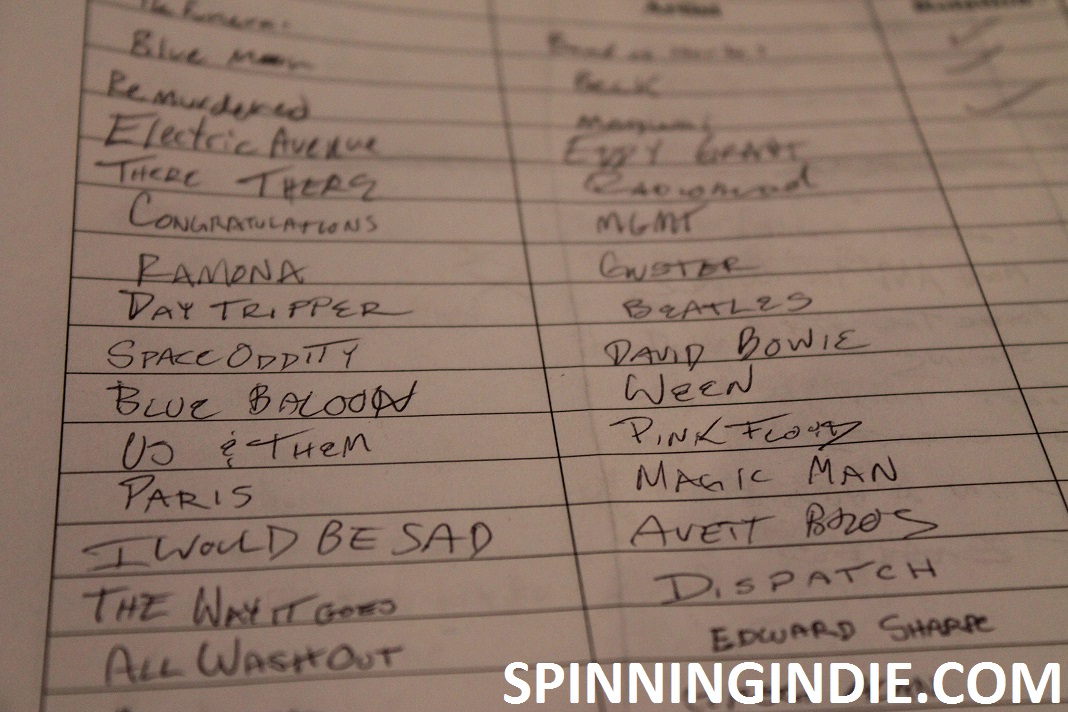 The Funeral Band of Horses
Blue Moon Beck
Re Murdered
Electric Avenue Eddy Grant
There There Radiohead
Congratulations MGMT
Ramona Guster
Day Tripper Beatles
Space Oddity David Bowie
Blue Baloon Ween
Us & Them Pink Floyd
Paris Magic Man
I Would Be Sad Avett Bros
The Way It Goes Dispatch
All Wash Out Edward Sharpe
SPINNINGINDIE.COM